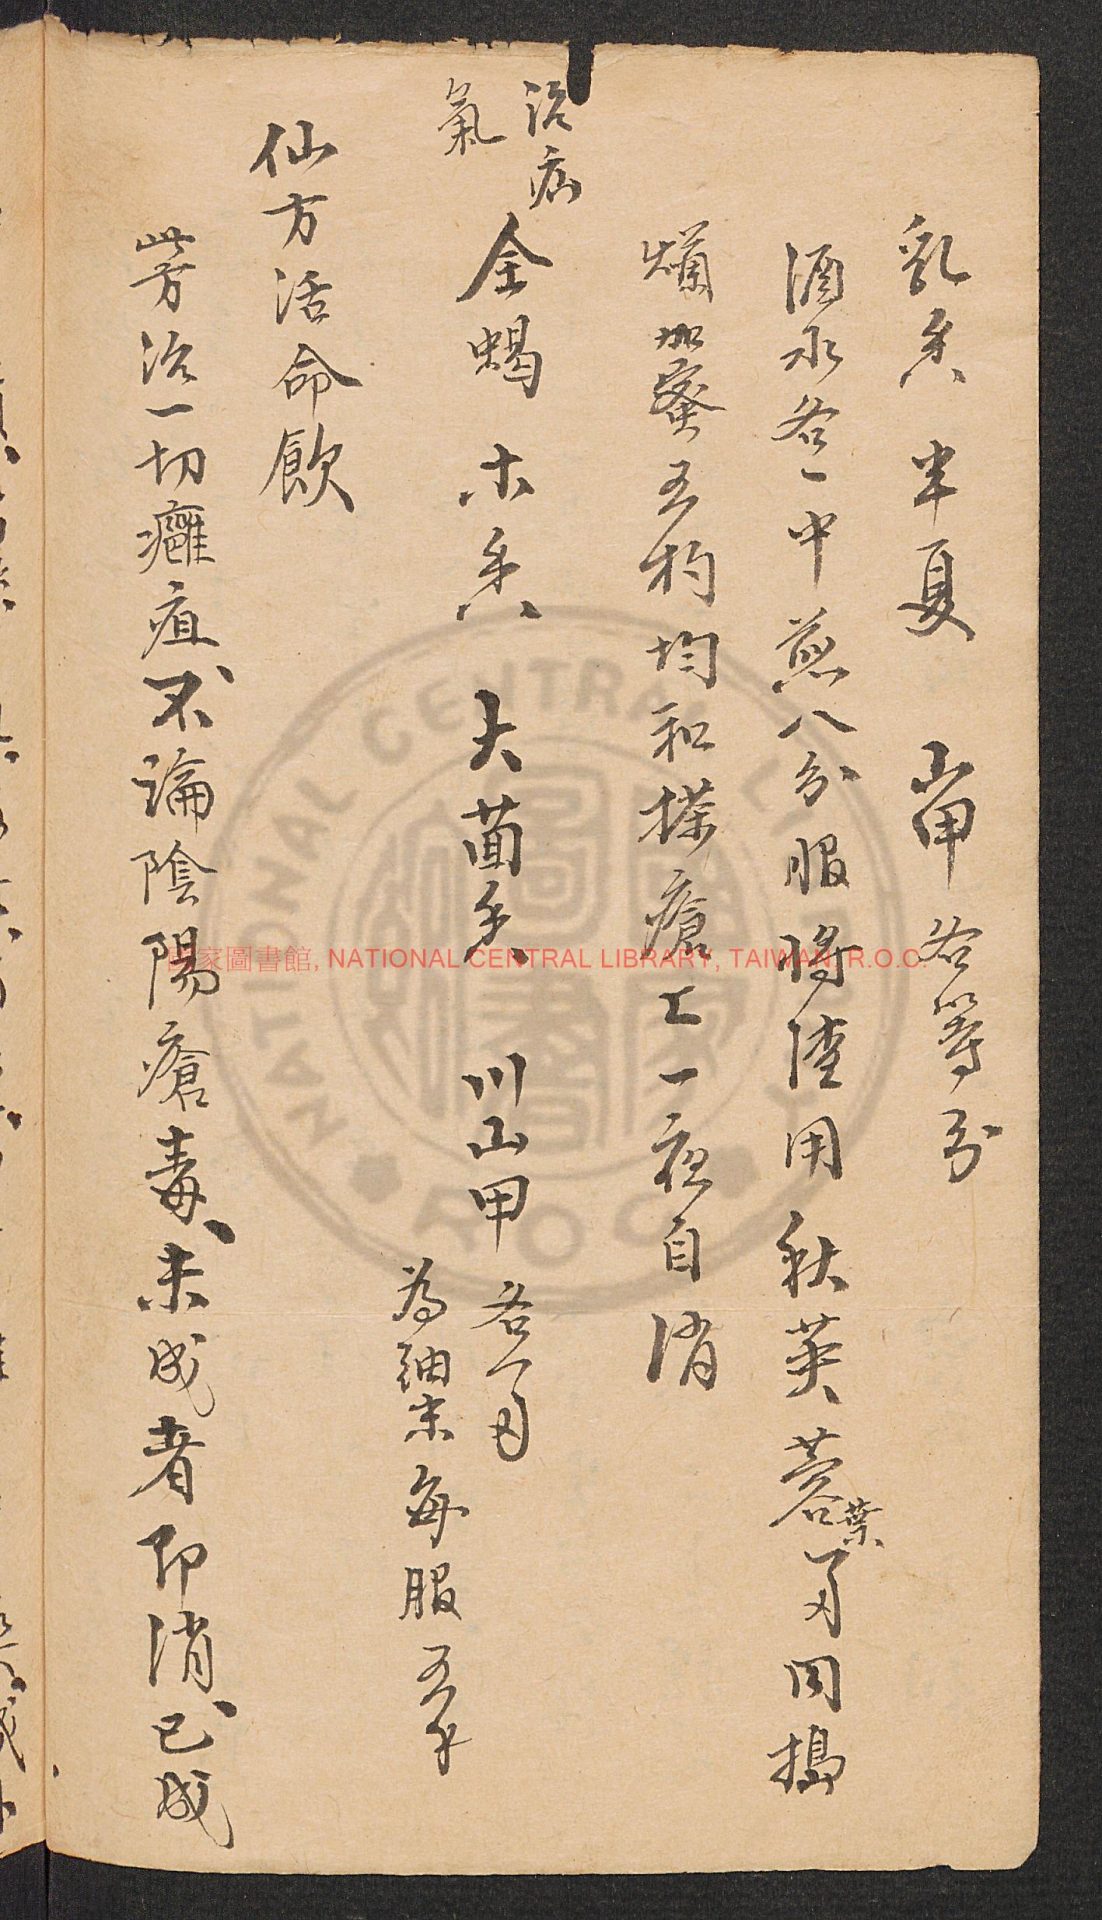 乳香 半夏 山甲 各等分
酒水各一中煎八分服將渣用秋芙蓉葉一刄同搗
爛加蜜五杓均和搽瘡上一夜自消
治疝氣
全蝎 木香 大茴香 川山甲 各一刄
為細末每服五分
仙方活命飲
此方治一切癰疽、不論陰陽瘡毒、未成者即消、已成
國家圖書館, NATIONAL CENTRAL LIBRARY, TAIWAN, R.O.C
NATIONAL CENTRAL LIBRARY
R.O.C